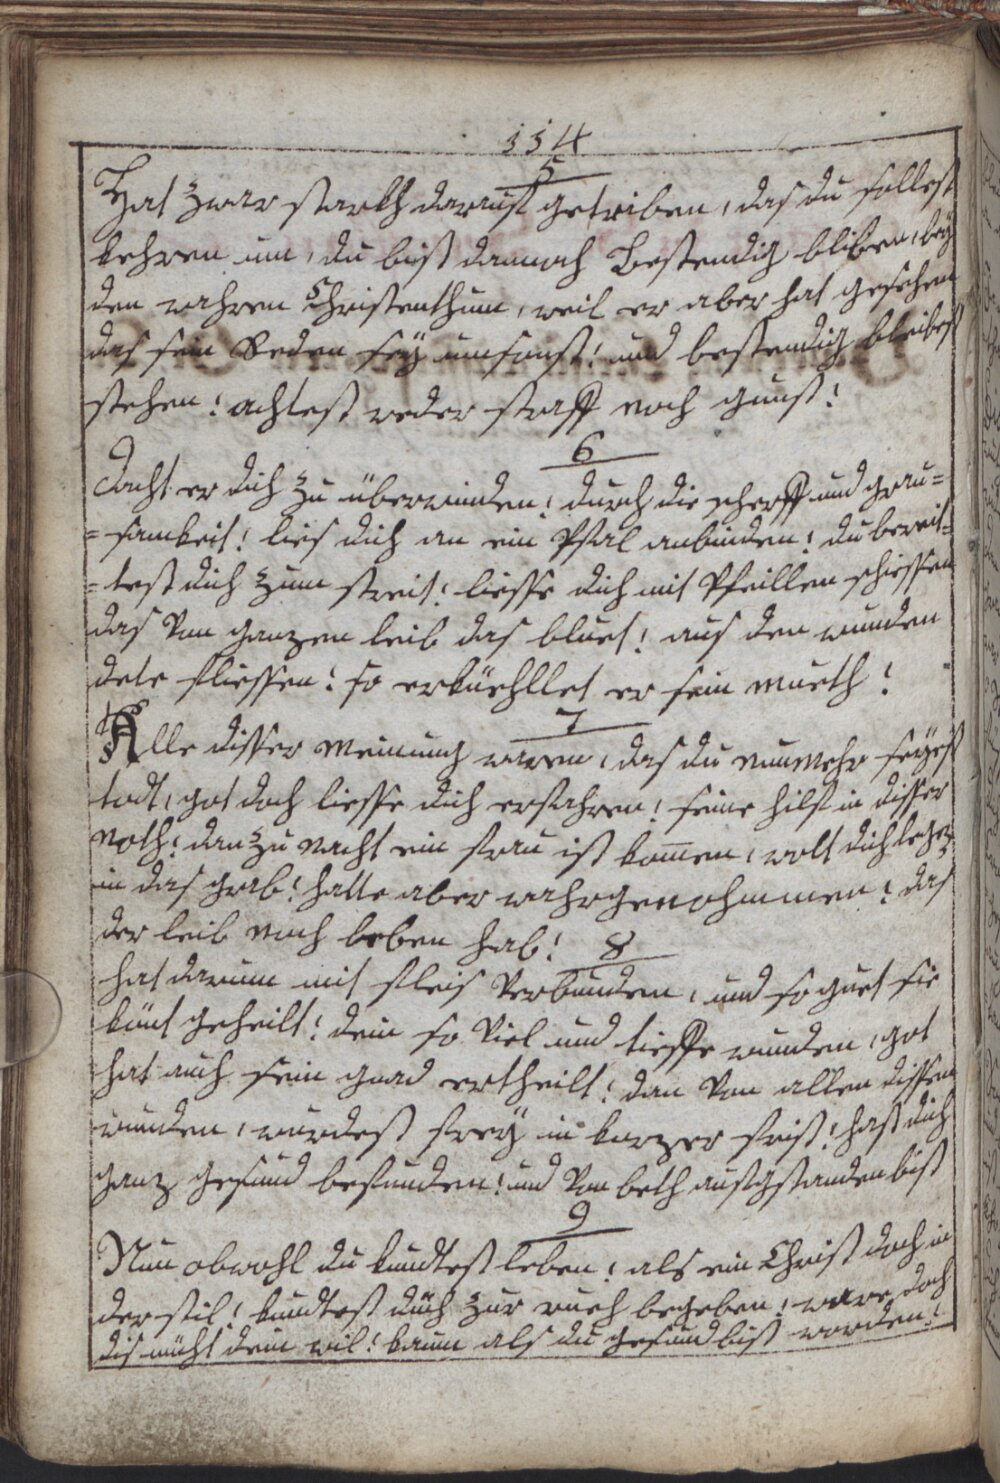 114
5
Hat zwar starkh darauf getriben, das du sollest
kehren um, du bist dannoch Bestendig bliben, beÿ
den wahren Christenthum, weil er aber hat gesehen
das sein Reden seÿ umsonst! und bestendig bleibest
stehen! achtest weder straff noch gunst!
6
Dacht er dich zu überwinden! durch die scherff und grau=
=samkeit! lies dich an ein Pfal anbinden! du bereit=
=test dich zum streit! liesse dich mit Pfeillen schiessen
das Von ganzen leib das bluet! aus den wunden
dete fliessen! so erküehllet er sein mueth!
7
Alle disser Meinung waren, das du nunmehr seÿest
todt, got doch liesse dich erfahren! seine hilf in disser
Noth! dan zu Nacht ein frau ist kom̄en, wolt dich legen
in das grab! hatte aber wahrgenohmmen! das
der leib noch leben hab!
8
hat darum mit fleis Verbunden, und so guet sie
könt geheilt! dein so Viel und tieffe wunden, got
hat auch sein gnad ertheilt! dan Von allen dissen
wunden, wurdest freÿ in kurzer frist! hast dich
ganz gesund befunden! und Von beth aufgstanden bist
9
Nun obwohl du kundtest leben! als ein Christ doch in
der stil! kundtest dich zur rueh begeben! ware doch
dis nicht dein wil! kaum als du gesund bist worden!